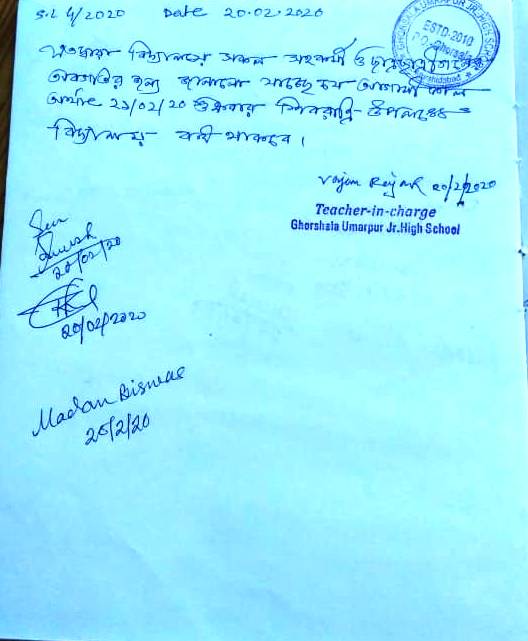 S.L 4/2020 Date 20.02.2020
GHORSHALA UMARPUR JR. HIGH SCHOOL
ESTD-2010
P.O. Ghorsala
Murshidabad
এতদ্বারা বিদ্যালয়ে সকল সহকর্মী ও ছাত্রছাত্রীদের
অবগতির জন্য জানানো যাচ্ছে যে আগামী কাল
অর্থাৎ 21/02/20 শুক্রবার শিবরাত্রি উপলক্ষে
বিদ্যালয় বন্ধ থাকবে।
20/2/2020
Teacher-in-charge
Ghorshala Umarpur Jr.High School
20/02/20
20/02/2020
Madan Biswas
20/2/20